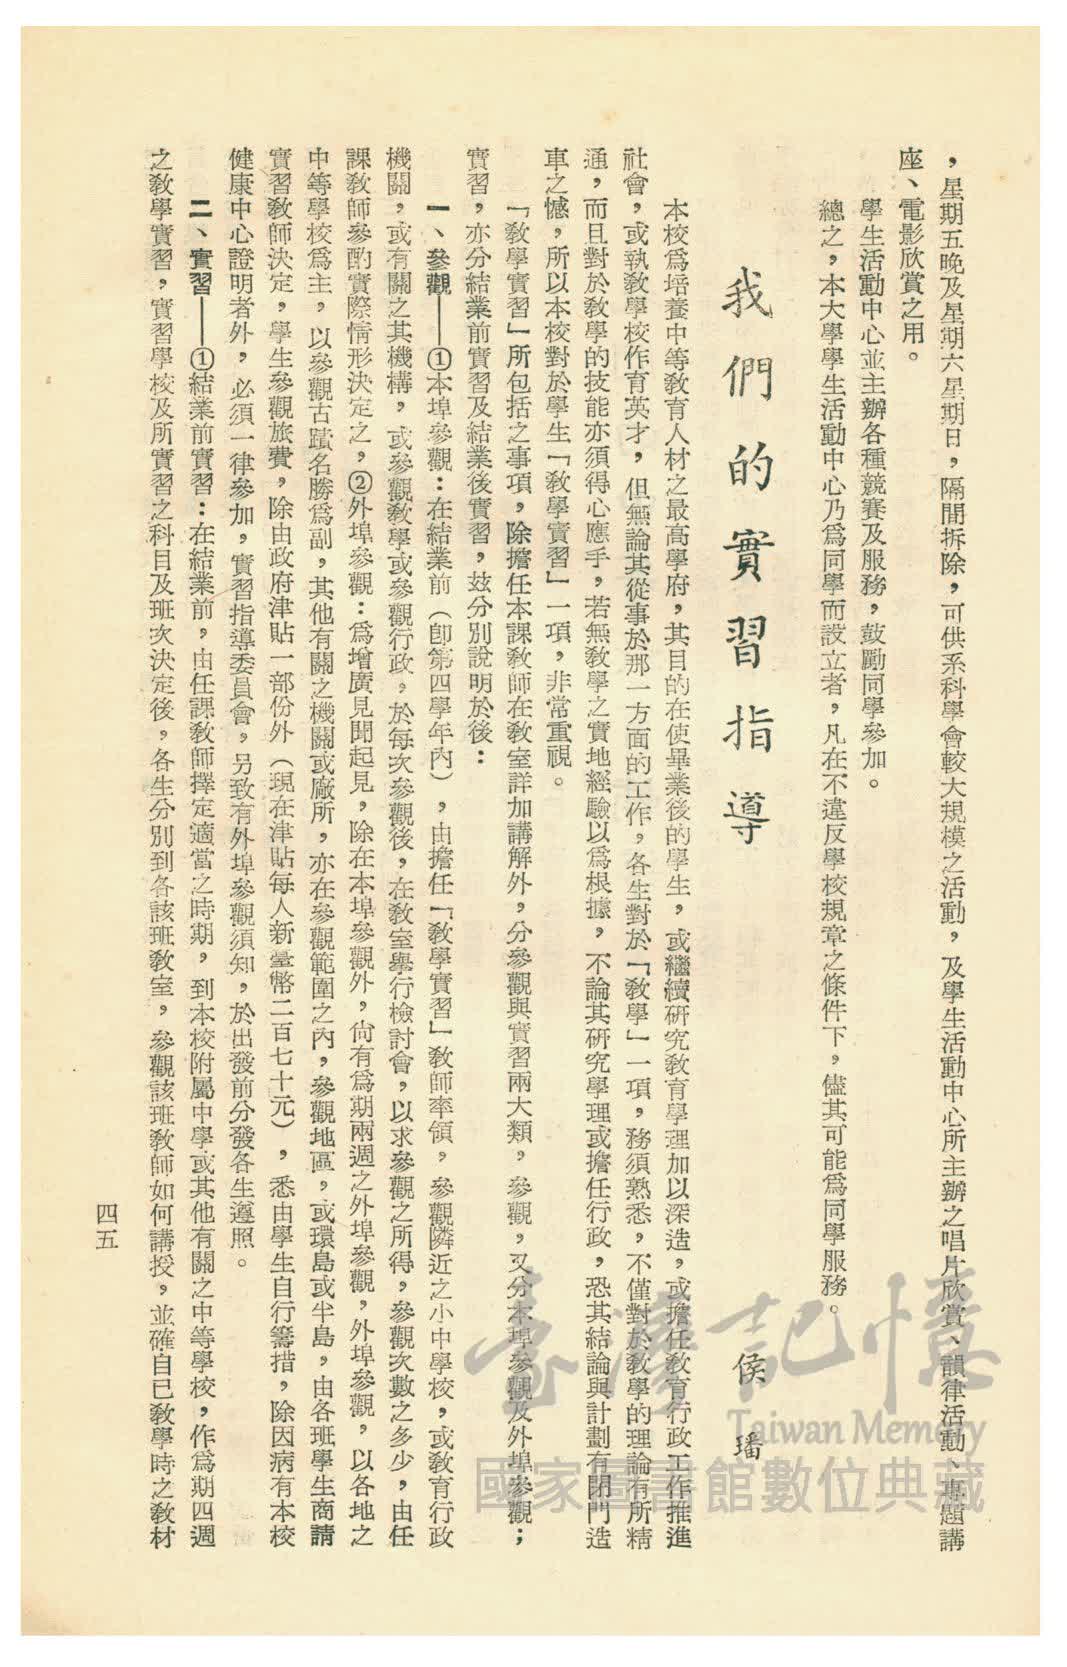 ，星期五晚及星期六星期日，隔間拆除，可供系科學會較大規模之活動，及學生活動中心所主辦之唱片欣賞、韻律活動、專題講
座、電影欣賞之用。
學生活動中心並主辦各種競賽及服務，鼓勵同學參加。
總之，本大學學生活動中心乃爲同學而設立者，凡在不違反學校規章之條件下，儘其可能爲同學服務。
我們的實習指導
侯璠
本校爲培養中等敎育人材之最高學府，其目的在使畢業後的學生，或繼續硏究敎育學理加以深造，或擔任敎育行政工作推進
社會，或執敎學校作育英才，但無論其從事於那一方面的工作，各生對於「敎學」一項，務須熟悉，不僅對於敎學的理論有所精
通，而且對於敎學的技能亦須得心應手，若無敎學之實地經驗以爲根據，不論其硏究學理或擔任行政，恐其結論與計劃有閉門造
車之憾，所以本校對於學生「敎學實習」一項，非常重視。
「敎學實習」所包括之事項，除擔任本課敎師在敎室詳加講解外，分參觀與實習兩大類，參觀，又分本埠參觀及外埠參觀；
實習，亦分結業前實習及結業後實習，玆分別說明於後：
一、參觀——①本埠參觀：在結業前（卽第四學年內），由擔任「敎學實習」敎師率領，參觀隣近之小中學校，或敎育行政
機關，或有關之其機構，或參觀敎學或參觀行政。於每次參觀後，在敎室舉行檢討會，以求參觀之所得，參觀次數之多少，由任
課敎師參酌實際情形決定之，②外埠參觀：爲增廣見聞起見，除在本埠參觀外，尙有爲期兩週之外埠參觀，外埠參觀，以各地之
中等學校爲主，以參觀古蹟名勝爲副，其他有關之機關或廠所，亦在參觀範圍之內，參觀地區，或環島或半島，由各班學生商請
實習敎師決定，學生參觀旅費，除由政府津貼一部份外（現在津貼每人新臺幣二百七十元），悉由學生自行籌措，除因病有本校
健康中心證明者外，必須一律參加，實習指導委員會，另致有外埠參觀須知，於出發前分發各生遵照。
二、實習——①結業前實習：在結業前，由任課敎師擇定適當之時期，到本校附屬中學或其他有關之中等學校，作爲期四週
之敎學實習，實習學校及所實習之科目及班次決定後，各生分別到各該班敎室，參觀該班敎師如何講授，並確自已敎學時之敎材
四五
臺灣記憶
Taiwan Memory
國家圖書館數位典藏